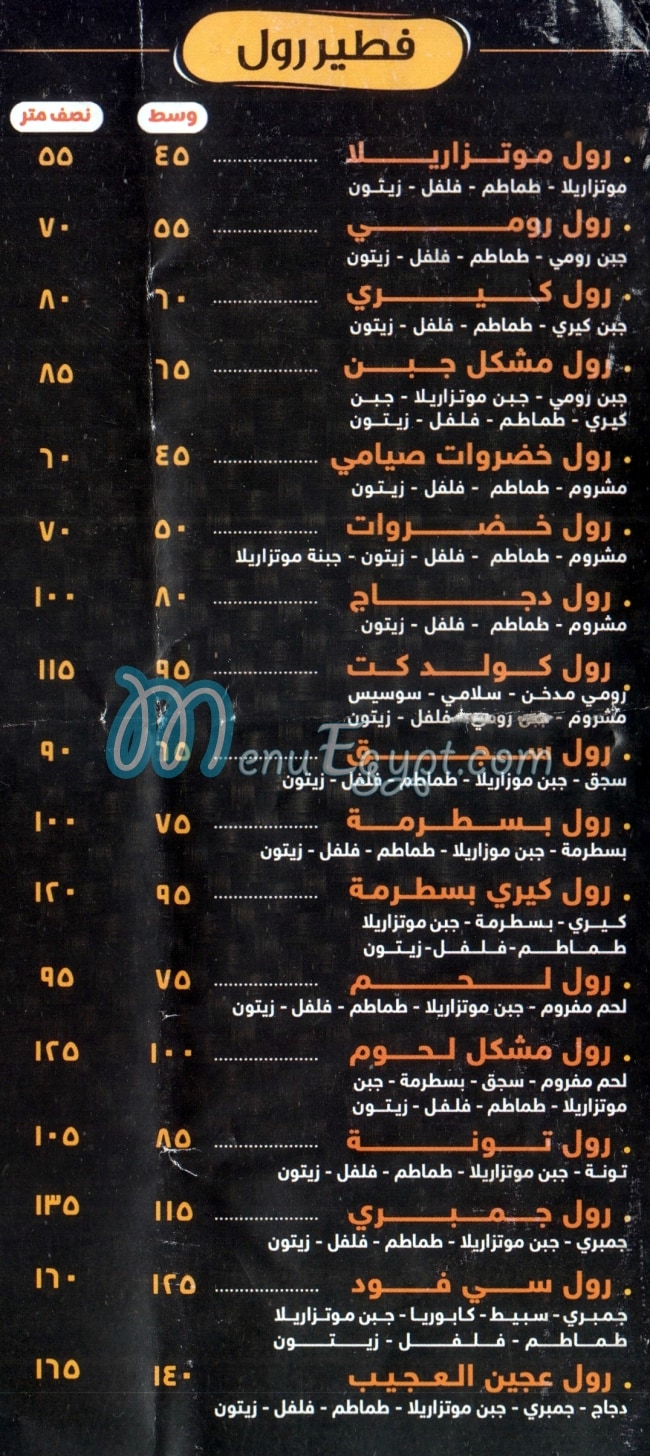 فطير رول
وسط نصف متر
• رول موتزاريلا .................... ٤٥ ٥٥
موتزاريلا - طماطم - فلفل - زيتون
• رول رومي .................... ٥٥ ٧٠
جبن رومي - طماطم - فلفل - زيتون
• رول كيري .................... ٦٠ ٨٠
جبن كيري - طماطم - فلفل - زيتون
• رول مشكل جبن .................... ٦٥ ٨٥
جبن رومي - جبن موتزاريلا - جبن
كيري - طماطم - فلفل - زيتون
• رول خضروات صيامي .................... ٤٥ ٦٠
مشروم - طماطم - فلفل - زيتون
• رول خضروات .................... ٥٠ ٧٠
مشروم - طماطم - فلفل - زيتون - جبنة موتزاريلا
• رول دجاج .................... ٨٠ ١٠٠
مشروم - طماطم - فلفل - زيتون
• رول كولد كت .................... ٩٥ ١١٥
رومي مدخن - سلامي - سوسيس
مشروم - جبن رومي - فلفل - زيتون
• رول سجق .................... ٦٥ ٩٠
سجق - جبن موزاريلا - طماطم - فلفل - زيتون
• رول بسطرمة .................... ٧٥ ١٠٠
بسطرمة - جبن موزاريلا - طماطم - فلفل - زيتون
• رول كيري بسطرمة .................... ٩٥ ١٢٠
كيري - بسطرمة - جبن موتزاريلا
طماطم - فلفل - زيتون
• رول لحم .................... ٧٥ ٩٥
لحم مفروم - جبن موتزاريلا - طماطم - فلفل - زيتون
• رول مشكل لحوم .................... ١٠٠ ١٢٥
لحم مفروم - سجق - بسطرمة - جبن
موتزاريلا - طماطم - فلفل - زيتون
• رول تونة .................... ٨٥ ١٠٥
تونة - جبن موتزاريلا - طماطم - فلفل - زيتون
• رول جمبري .................... ١١٥ ١٣٥
جمبري - جبن موتزاريلا - طماطم - فلفل - زيتون
• رول سي فود .................... ١٢٥ ١٦٠
جمبري - سبيط - كابوريا - جبن موتزاريلا
طماطم - فلفل - زيتون
• رول عجين العجيب ١٤٠ ١٦٥
دجاج - جمبري - جبن موتزاريلا - طماطم - فلفل - زيتون
MenuEgypt.com